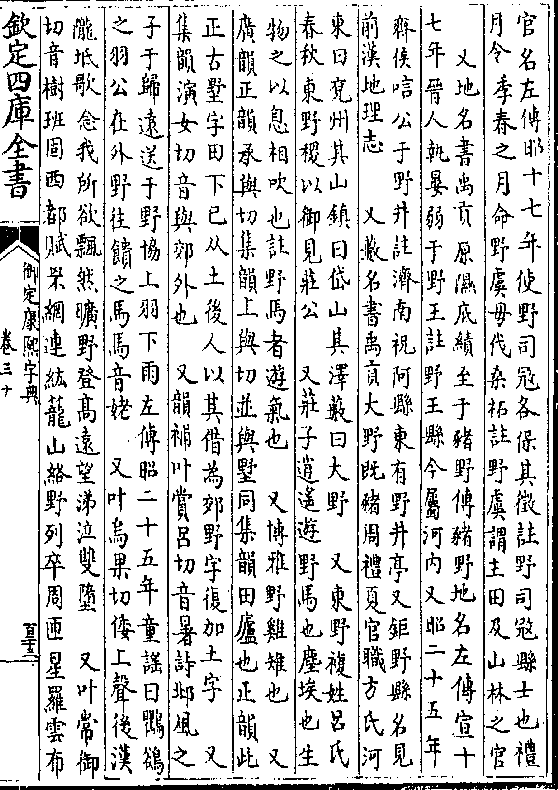 官名左傳昭十七年使野司寇各保其徵註野司寇縣士也禮
月令季春之月命野虞毋伐桑柘註野虞謂主田及山林之官
又地名書禹貢原隰底績至于豬野傳豬野地名左傳宣十
七年晉人執晏弱于野王註野王縣今屬河內又昭二十五年
齊侯唁公于野井註濟南祝阿縣東有野井亭又鉅野縣名見
前漢地理志　又藪名書禹貢大野既豬周禮夏官職方氏河
東曰兗州其山鎮曰岱山其澤藪曰大野　又東野複姓呂氏
春秋東野稷以御見莊公　又莊子逍遙遊野馬也塵埃也生
物之以息相吹也註野馬者遊氣也　又博雅野雞雉也　又
廣韻正韻承與切集韻上與切並與墅同集韻田廬也正韻此
正古墅字田下已从土後人以其借為郊野字復加土字　又
集韻演女切音與郊外也　又韻補叶賞呂切音暑詩邶風之
子于歸遠送于野協上羽下雨左傳昭二十五年童謠曰鸜鵒
之羽公在外野往饋之馬馬音姥　又叶烏果切倭上聲後漢
龐坻歌念我所欲飄然曠野登高遠望涕泣雙墮　又叶常御
切音樹班固西都賦罘網連紘籠山絡野列卒周匝星羅雲布
欽定四庫全書
御定康熙字典
卷三十